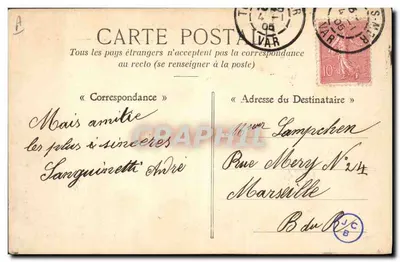 A
CARTE POSTALE
Tous les pays étrangers n'acceptent pas la correspondance
au recto (se renseigner à la poste)
4 -1
05
VAR
S-MER
10
« Correspondance »
« Adresse du Destinataire »
Mais amitie
les plus i sinceres
Sanguinetti André
Lampchen
Rue Mery N° 24
Marseille
B du R
CRAPHI
J C
B